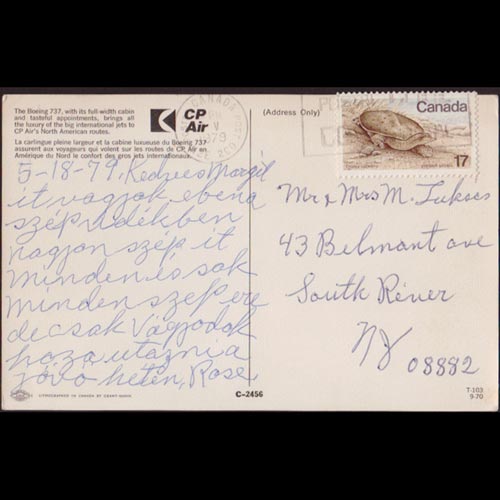 The Boeing 737, with its full-width cabin
and tasteful appointments, brings all
the luxury of the big international jets to
CP Air's North American routes.
La carlingue pleine largeur et la cabine luxueuse du Boeing 737
assurent aux voyageurs qui volent sur les routes de CP Air en
Amérique du Nord le confort des gros jets internationaux.
CP
Air
(Address Only)
CANADA
Canada
17
5-18-79, Kedves Margit
it vagyok ebena
szép vidékben
nagyon szép it
minden és sok
minden szep ere
de csak vágyodok
haza utazni a
jövö héten, Rose
Mr & Mrs M. Tukses
43 Belmont ave
South River
NJ 08882
LITHOGRAPHED IN CANADA BY GRANT-MANN
C-2456
T-103
9-70